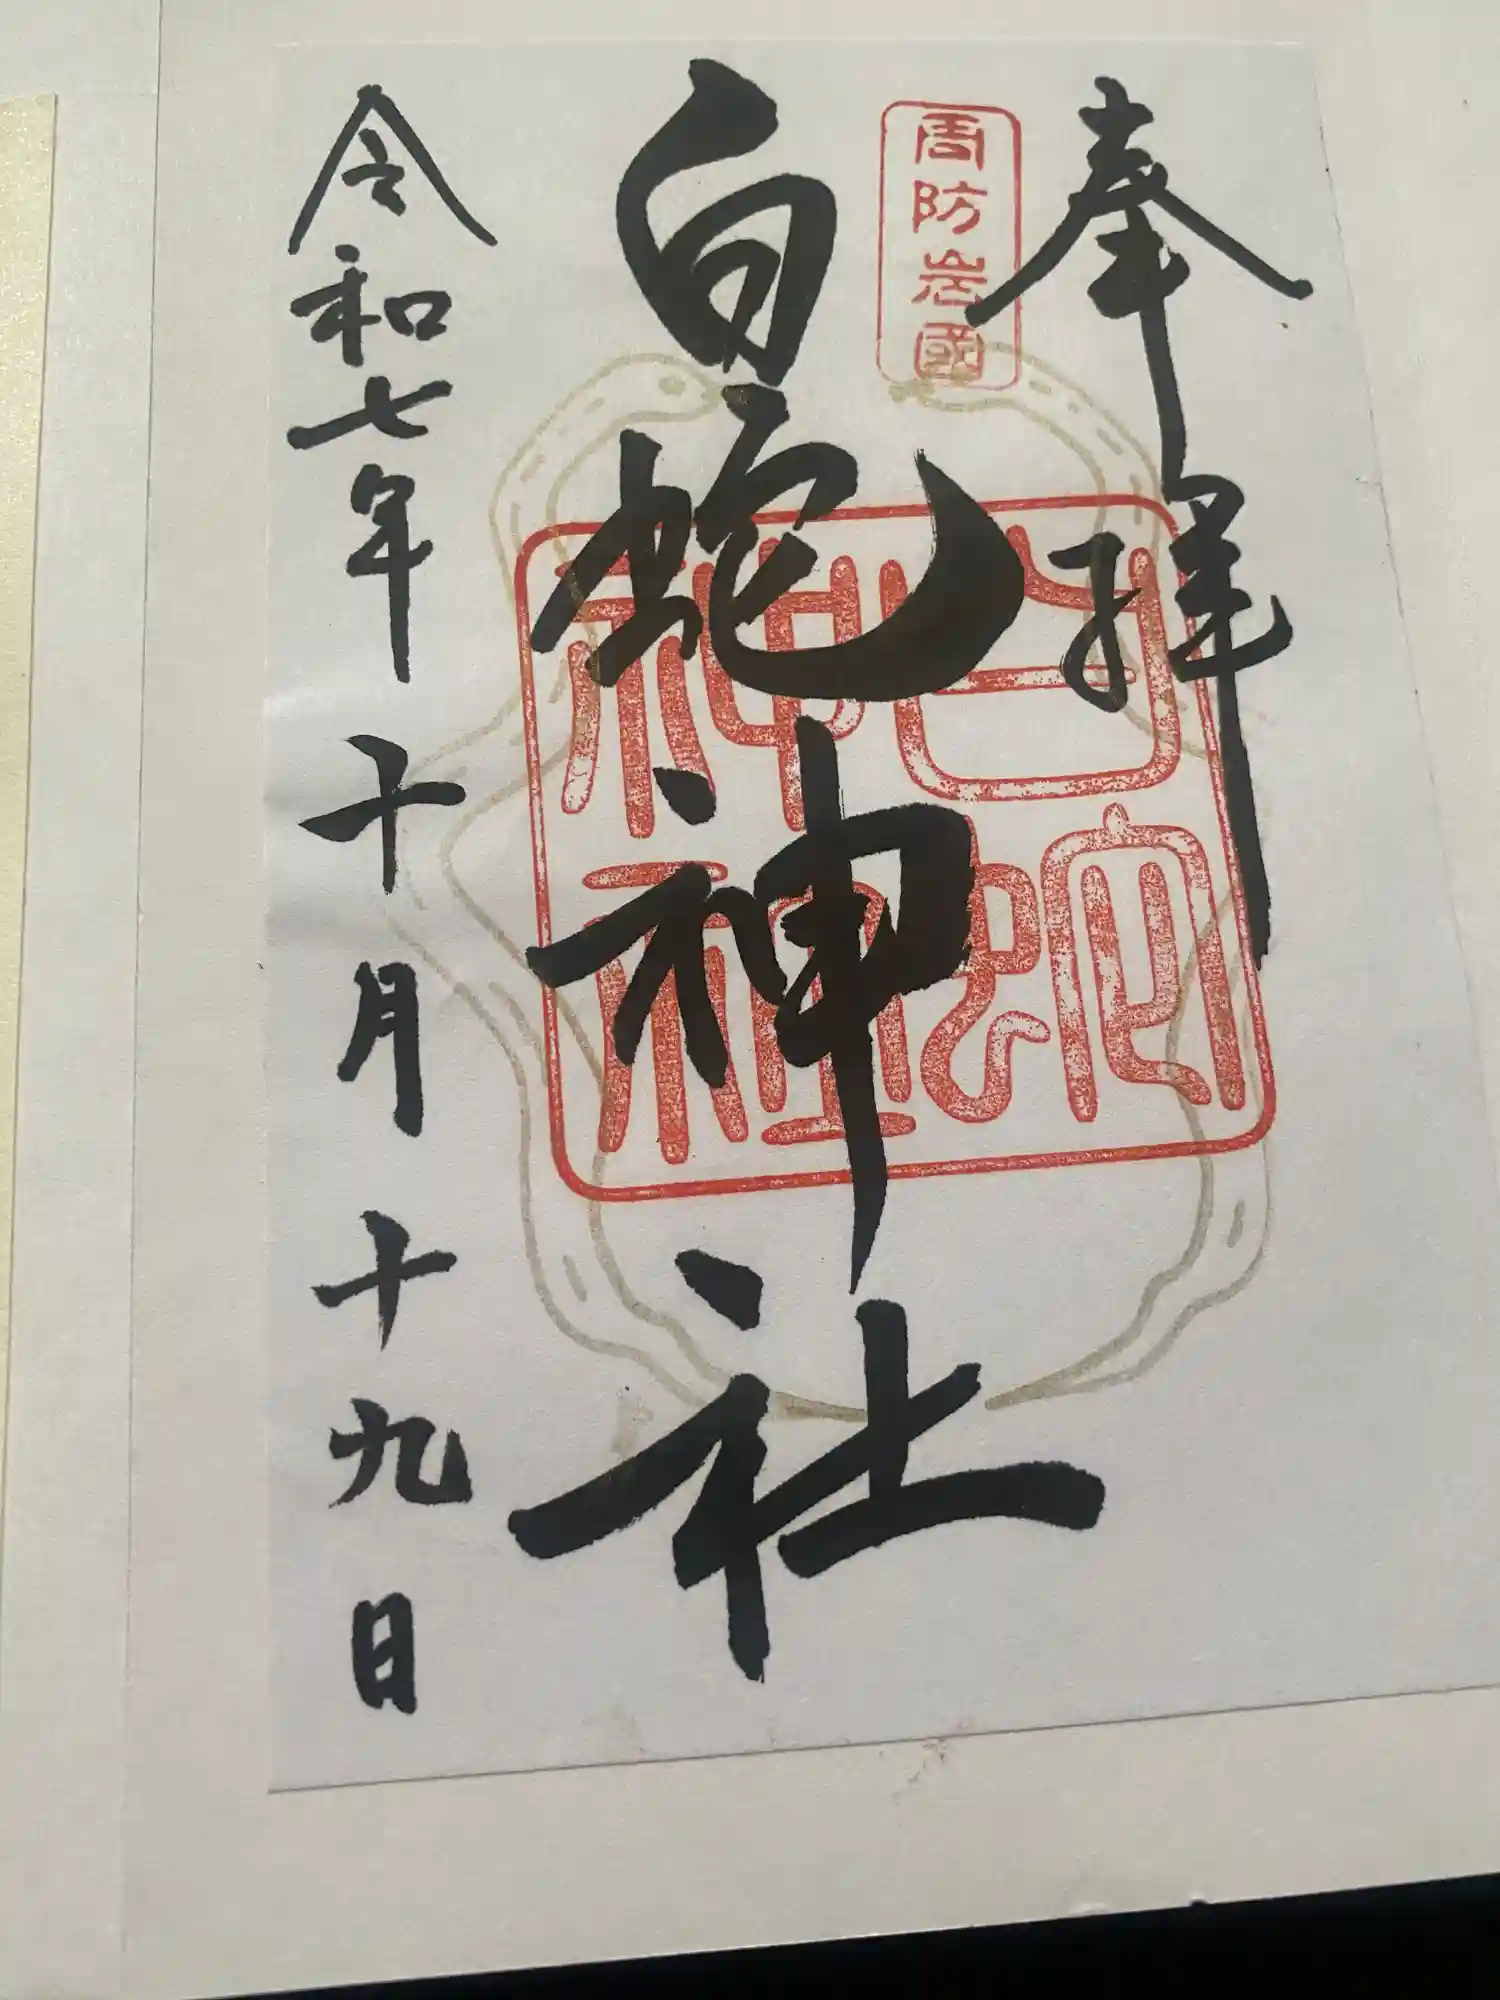 奉拝
周防岩國
白蛇神社
白蛇神社
令和七年十月十九日